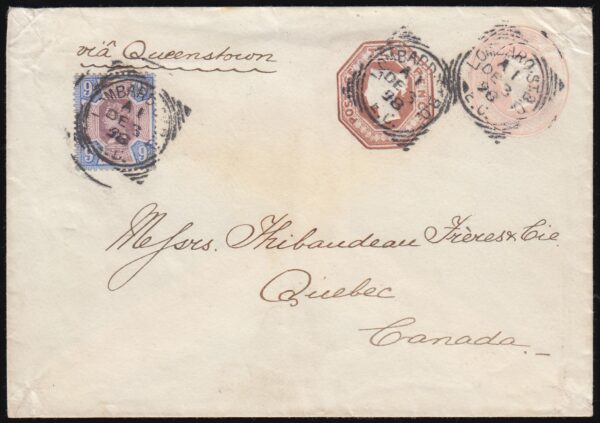 viâ Queenstown
9 LOMBARD 9
A 1
DE 3
98
E.C.
9 9
LOMBARD ST. B.O.
A 1
DE 3
98
E.C.
LOMBARD ST. B.O.
A 1
DE 3
98
E.C.
Messrs. Thibaudeau Frères & Cie
Quebec
Canada.